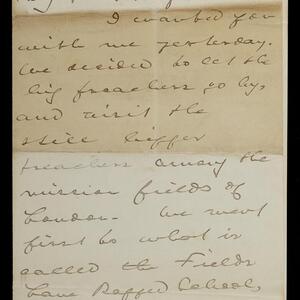 I wanted you
with me yesterday.
We decided to let the
big preachers go by,
and visit the
still bigger
preachers among the
mission fields of
London - We went
first to what is
called the Fields
Lane Ragged Schools